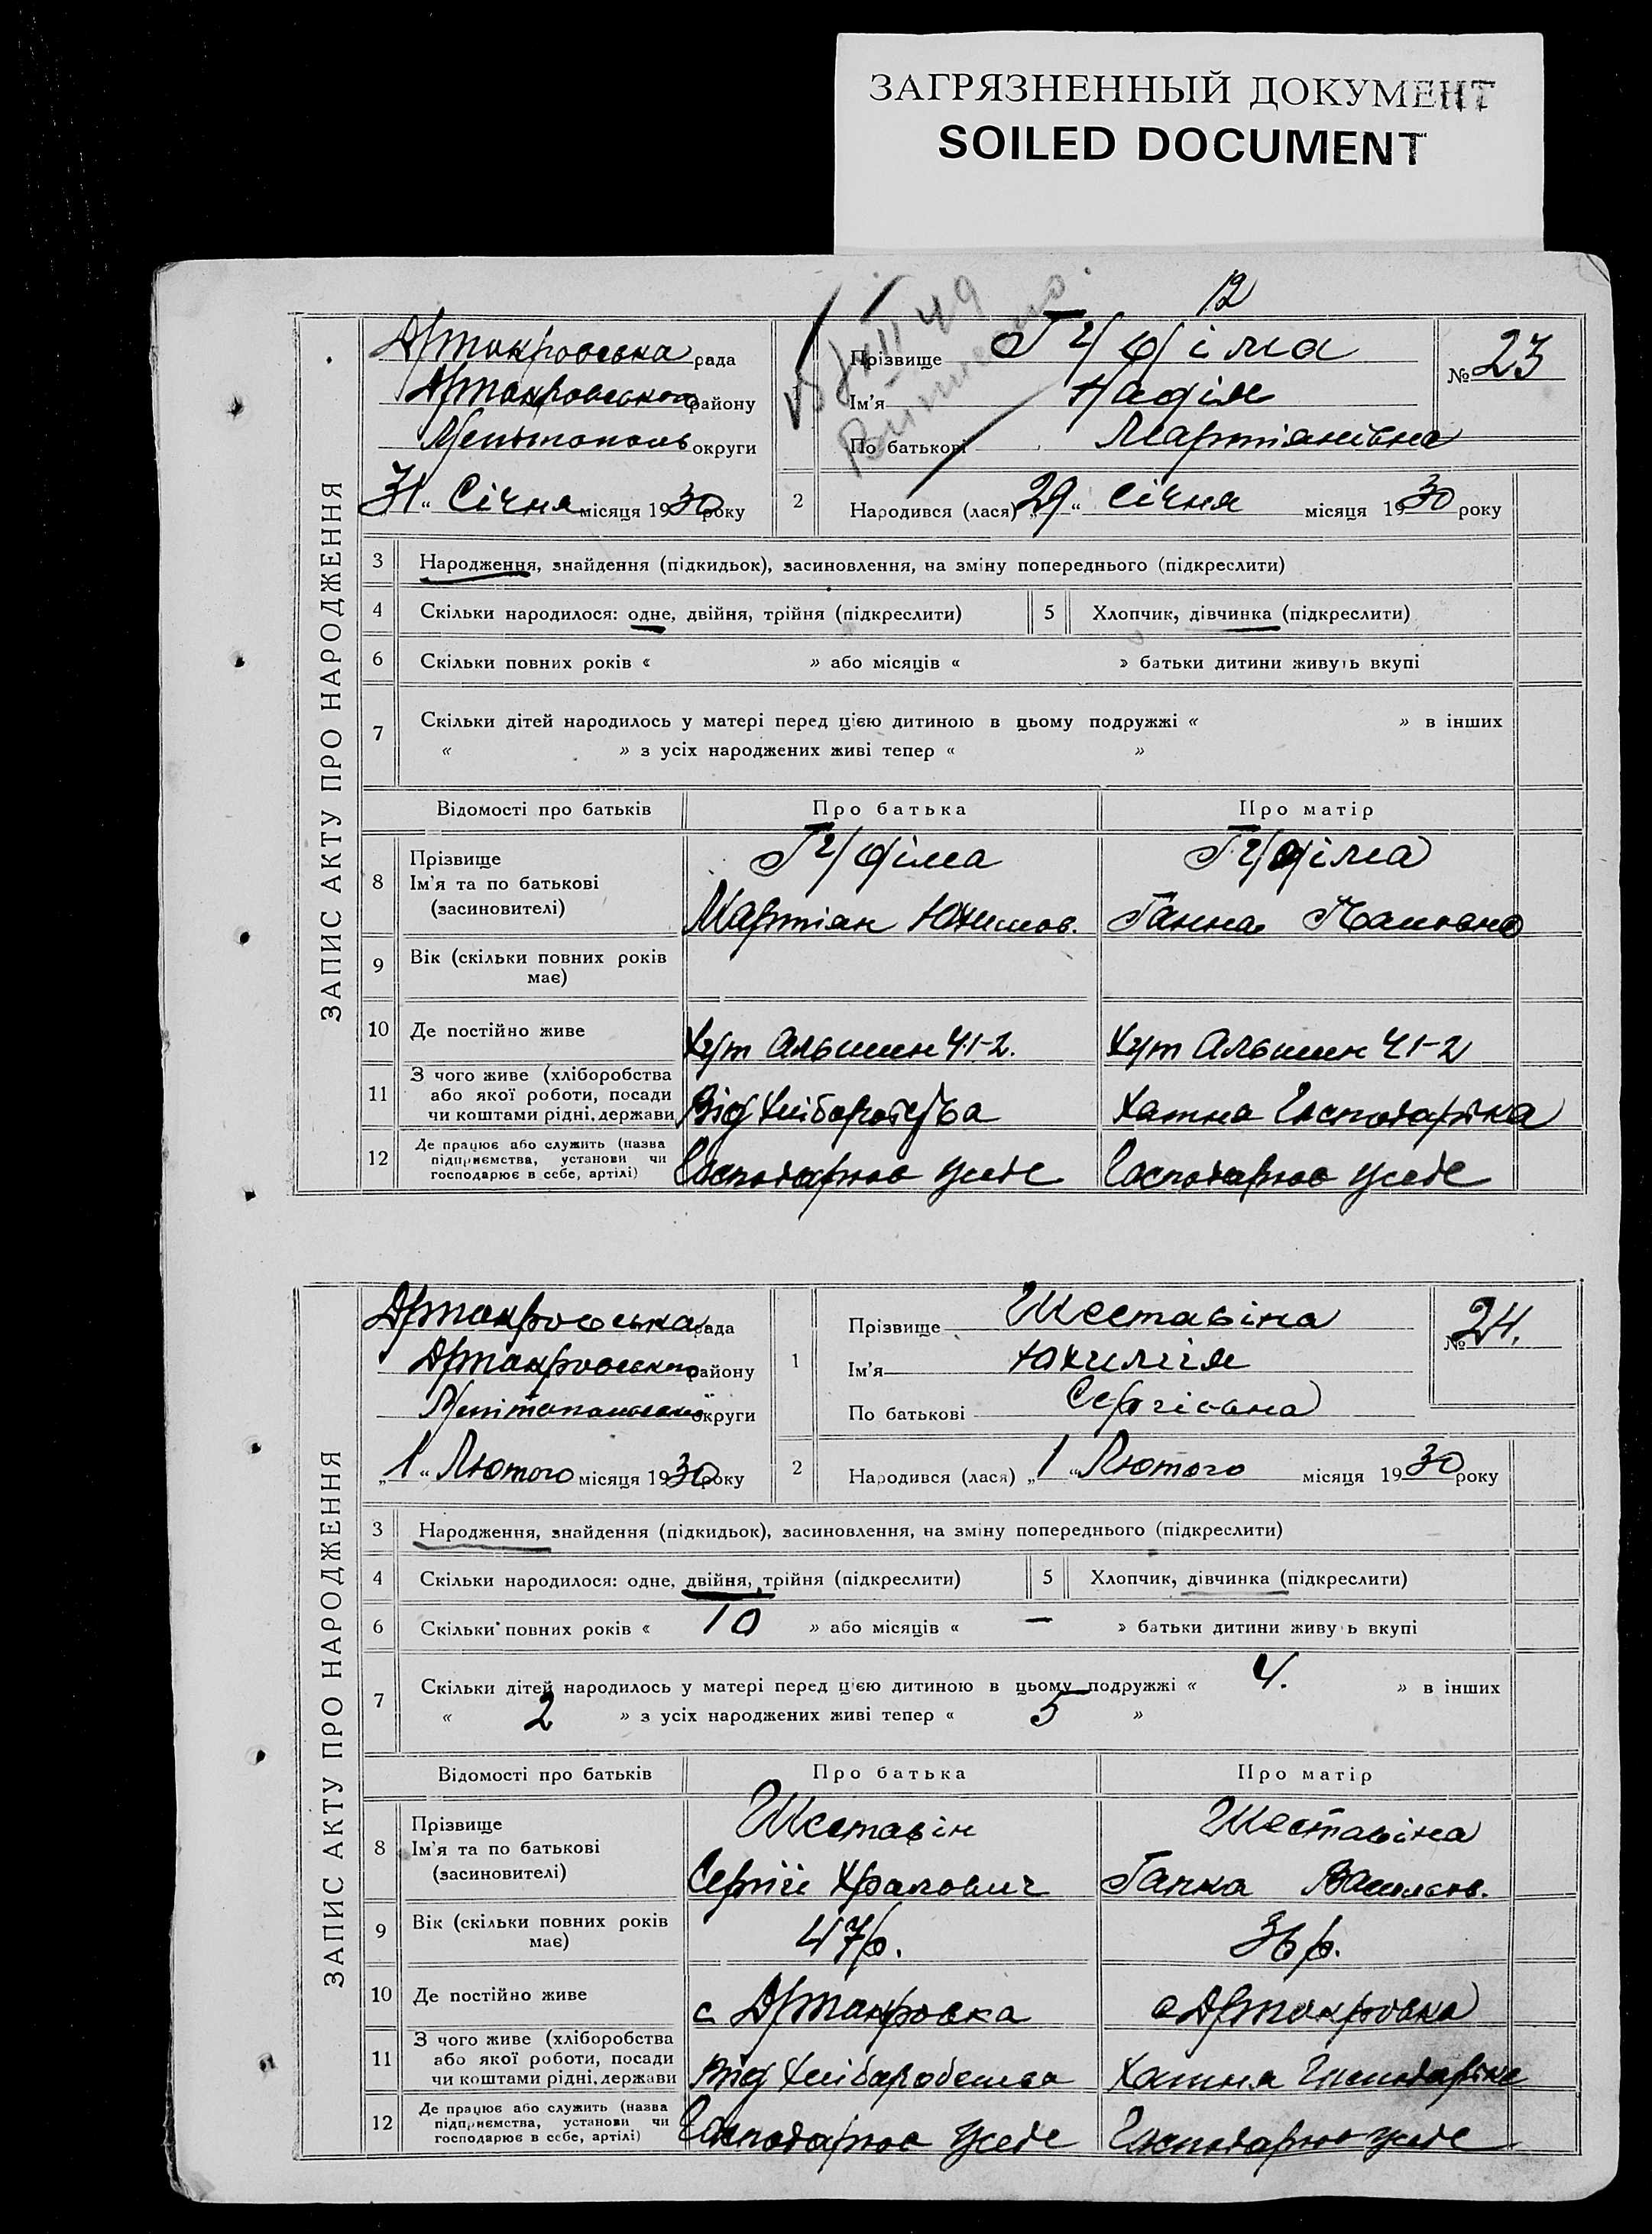 ЗАГРЯЗНЕННЫЙ ДОКУМЕНТ
SOILED DOCUMENT
12
ЗАПИС АКТУ ПРО НАРОДЖЕННЯ
рада
району
округи
31 “ Січня місяця 1930 року
Прізвище
Ім'я Надія
По батькові Мартіянівна
№ 23
2 Народився (лася) „29“ Січня місяця 1930 року
3 Народження, знайдення (підкидьок), засиновлення, на зміну попереднього (підкреслити)
4 Скільки народилося: одне, двійня, трійня (підкреслити) 5 Хлопчик, дівчинка (підкреслити)
6 Скільки повних років « » або місяців « » батьки дитини живуть вкупі
7 Скільки дітей народилось у матері перед цією дитиною в цьому подружжі « » в інших
« » з усіх народжених живі тепер « »
Відомості про батьків Про батька Про матір
8 Прізвище
Ім'я та по батькові
(засиновителі)
Мартіян Ганна
9 Вік (скільки повних років
має)
10 Де постійно живе Хут Хут
11 З чого живе (хліборобства
або якої роботи, посади
чи коштами рідні, держави
Від Хліборобства Хатня Господарка
12 Де працює або служить (назва
підприємства, установи чи
господарює в себе, артілі)
Господарює усебе Господарює усебе
ЗАПИС АКТУ ПРО НАРОДЖЕННЯ
рада
району
округи
„1“ Лютого місяця 1930 року
1 Прізвище Шеставіна
Ім'я
По батькові Сергієвна
№ 24.
2 Народився (лася) „1“ Лютого місяця 1930 року
3 Народження, знайдення (підкидьок), засиновлення, на зміну попереднього (підкреслити)
4 Скільки народилося: одне, двійня, трійня (підкреслити) 5 Хлопчик, дівчинка (підкреслити)
6 Скільки повних років « 10 » або місяців « — » батьки дитини живуть вкупі
7 Скільки дітей народилось у матері перед цією дитиною в цьому подружжі « 4. » в інших
« 2 » з усіх народжених живі тепер « 5 »
Відомості про батьків Про батька Про матір
8 Прізвище
Ім'я та по батькові
(засиновителі)
Шеставін Шеставіна
Сергій Ганна Васильов.
9 Вік (скільки повних років
має)
47 р. 36 р.
10 Де постійно живе с с
11 З чого живе (хліборобства
або якої роботи, посади
чи коштами рідні, держави
Від Хліборобства Хатня Господарка
12 Де працює або служить (назва
підприємства, установи чи
господарює в себе, артілі)
Господарює усебе Господарює усебе